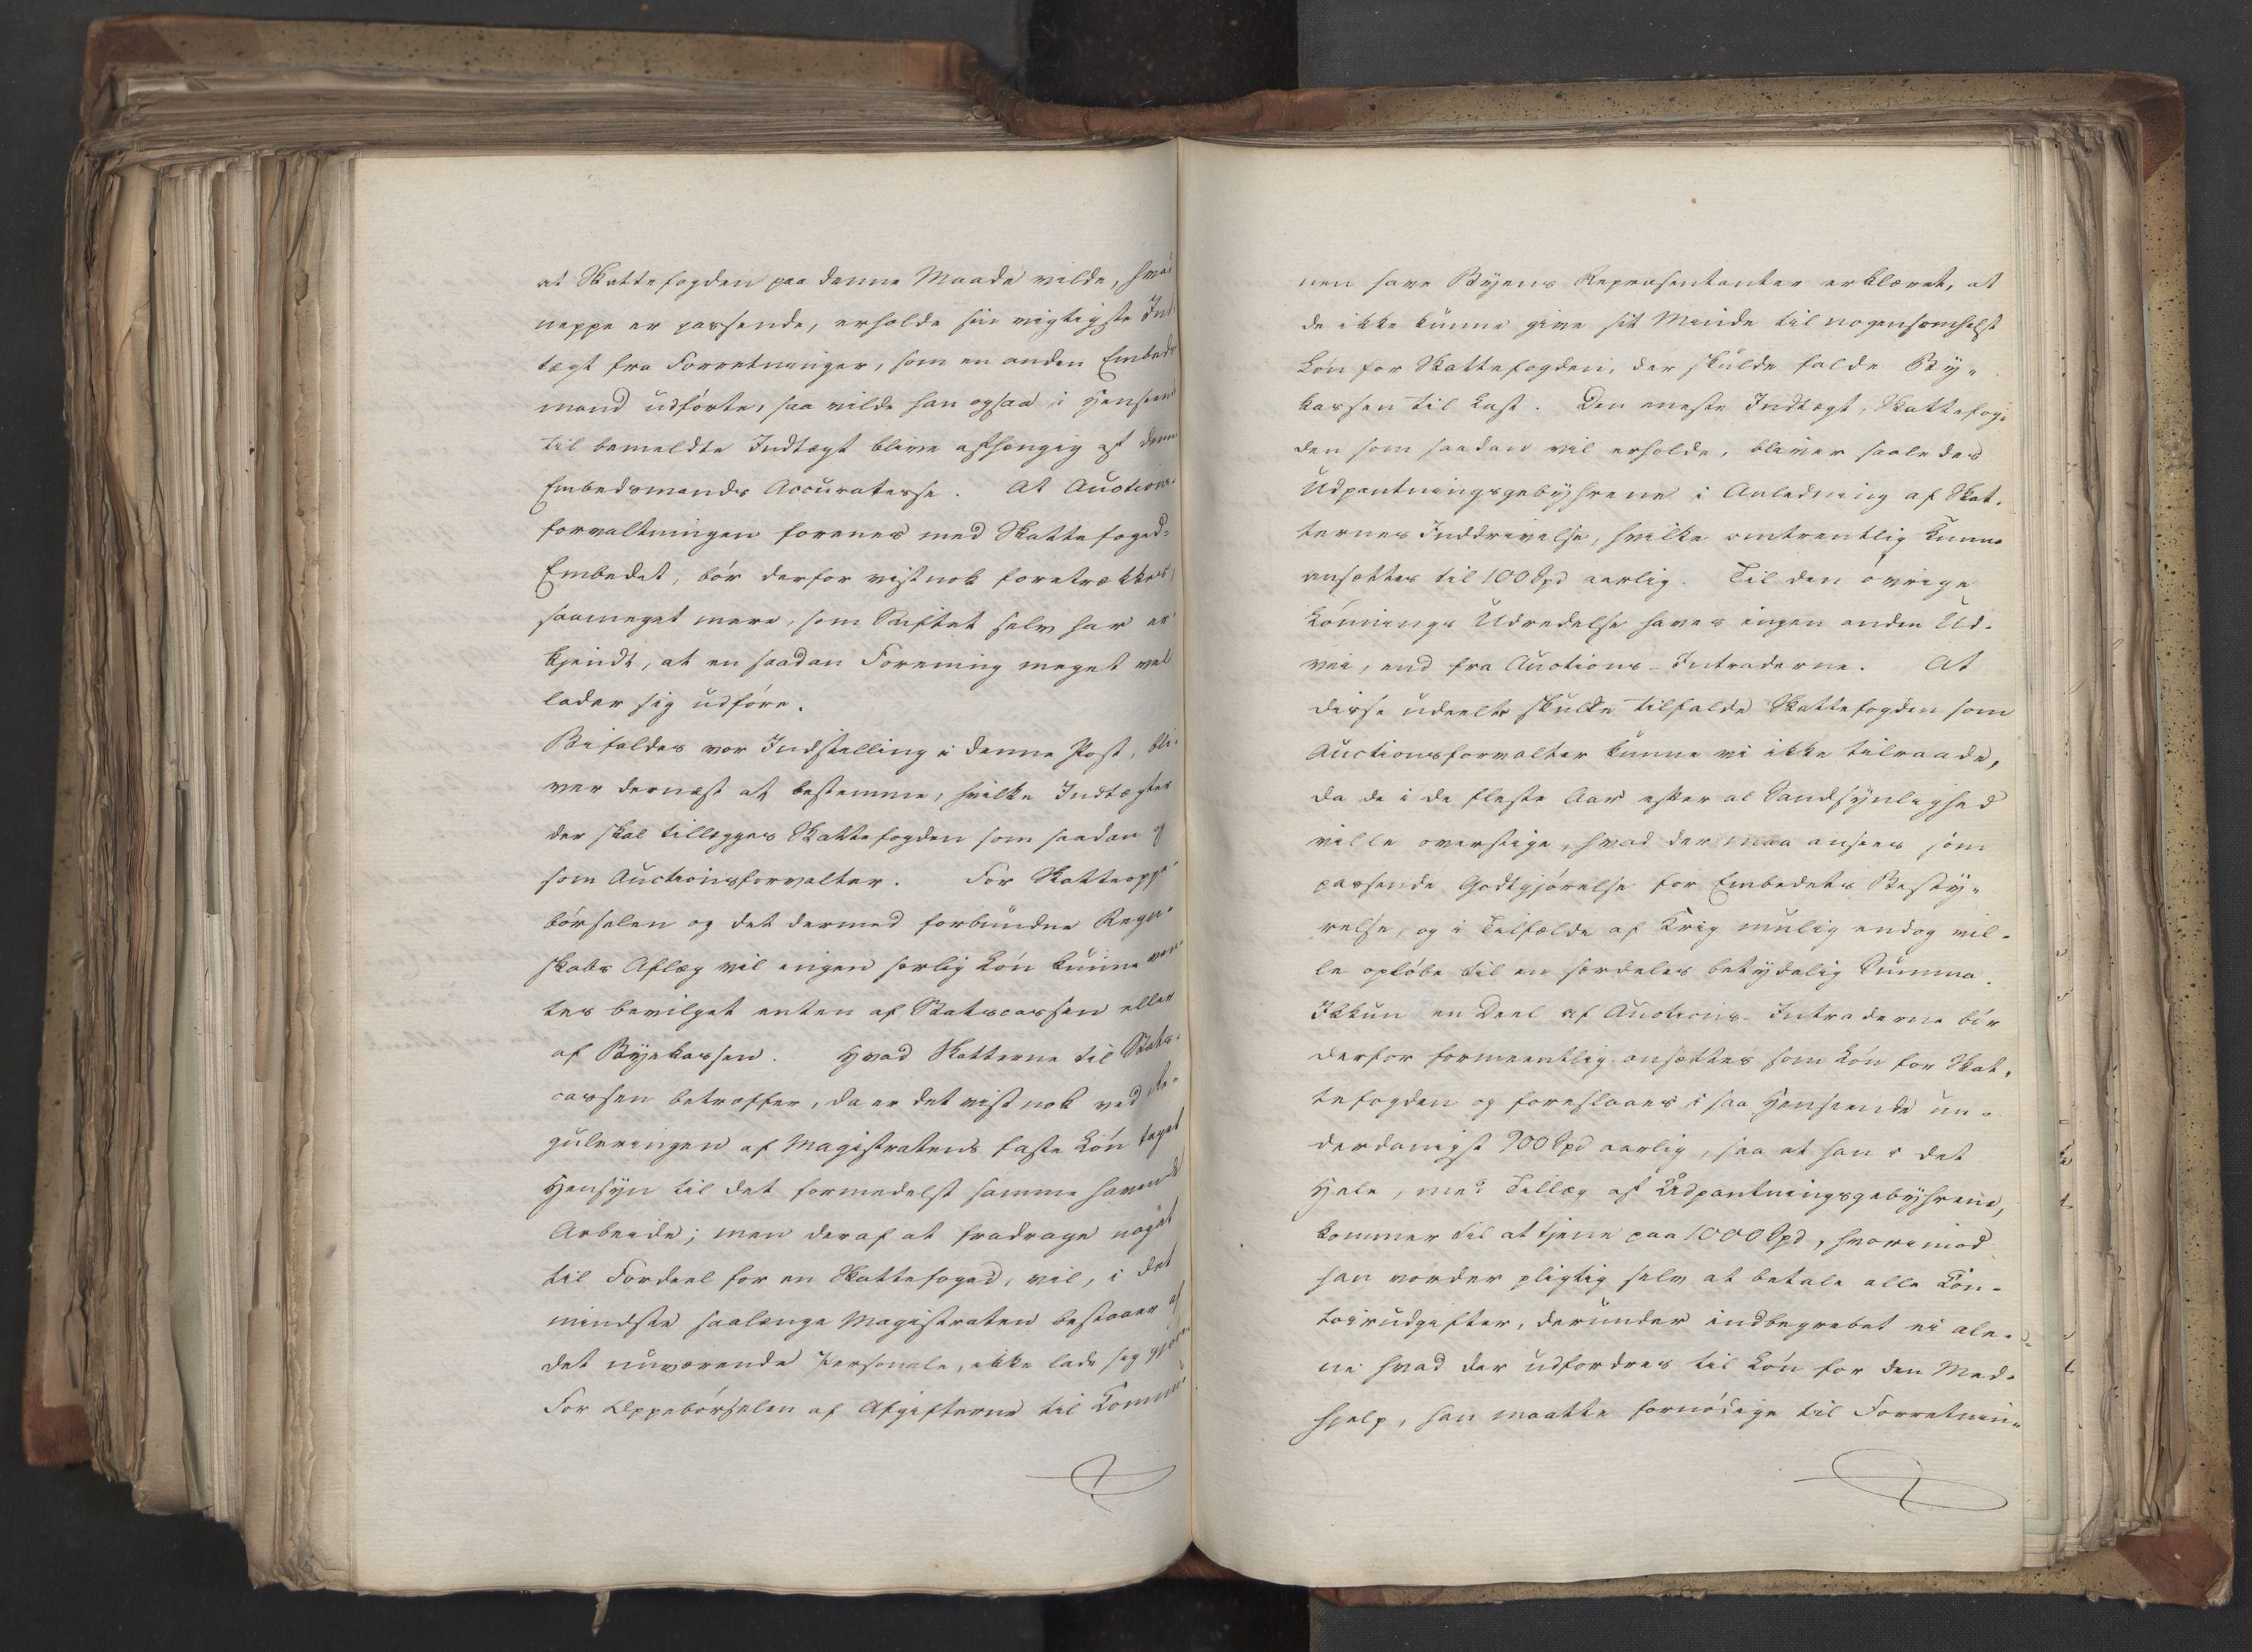 at Skattefogden paa denne Maade vilde, hvad
neppe er passende, erholde sin vigtigste Ind-
tægt fra Forretninger, som en anden Embeds-
mand udførte, saa vilde han ogsaa i Henseende
til bemeldte Indtægt blive afhængig af denne
Embedsmands Accuratesse. At Auctions-
forvaltningen forenes med Skattefoged-
Embedet, bør derfor vistnok foretrækkes,
saameget mere, som Stiftet selv har er-
kjendt, at en saadan Forening meget vel
lader sig udføre.
Bifaldes vor Indstilling i denne Post, bli-
ver dernæst at bestemme, hvilke Indtægter
der skal tillægges Skattefogden som saadan og
som Auctionsforvalter. For Skatteoppe-
børselen og det dermed forbundne Regn-
skabs Aflæg vil ingen særlig Løn kunne ven-
tes bevilget enten af Statscassen eller
af Byekassen. Hvad Skatterne til Stats-
cassen betræffer, da er det vistnok ved Re-
guleringen af Magistratens faste Løn taget
Hensyn til det formedelst samme havende
Arbeide; men deraf at fradrage noget
til Fordeel for en Skattefoged, vil, i det
mindste saalænge Magistraten bestaaer af
det nuværende Personale, ikke lade sig gjøre.
For Oppebørselen af Afgifterne til Kommu-
nen have Byens Repræsentanter erklæret, at
de ikke kunne give sit Minde til nogensomhelst
Løn for Skattefogden, der skulde falde By-
kassen til Last. Den meste Indtægt, Skattefog-
den som saadan vil erholde, bliver saaledes
Udpantningsgebyhrene i Anledning af Skat-
ternes Inddrivelse, hvilke omtrentlig kunne
ansættes til 100 Spd aarlig. Til den øvrige
Lønnings Udredelse haves ingen anden Ud-
vei, end fra Auctions-Intraderne. At
disse udeelte skulde tilfalde Skattefogden som
Auctionsforvalter kunne vi ikke tilraade,
da de i de fleste Aar efter al Sandsynlighed
ville overstige, hvad der maa ansees som
passende Godtgjørelse for Embedets Besty-
relse, og i Tilfælde af Krig mulig endog vil-
le opløbe til en særdeles betydelig Summa.
Ikkun en Deel af Auctions-Intraderne bør
derfor formeentlig ansættes som Løn for Skat-
tefogden og foreslaaes i saa Henseende un-
derdanigst 900 Spd aarlig, saa at han i det
Hele, med Tillæg af Udpantningsgebyhrene,
kommer til at tjene paa 1000 Spd, hvorimod
han vorder pligtig selv at betale alle Kon-
toirudgifter, derunder indbegrebet ei ale-
ne hvad der udfordres til Løn for den Med-
hjelp, han maatte fornødige til Forretnin-